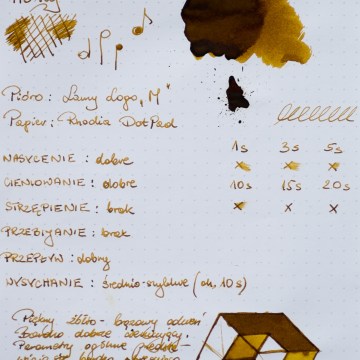 Pióro: Lamy Logo „M"
Papier: Rhodia DotPad
1s 3s 5s
NASYCENIE: dobre
CIENIOWANIE: dobre
10s 15s 20s
STRZĘPIENIE: brak
PRZEBIJANIE: brak
PRZEPŁYW: dobry
WYSYCHANIE: średnio-szybkie (ok. 10s)
Piękny żółto-brązowy odcień
Bardzo dobrze cieniujący.
Parametry ogólne